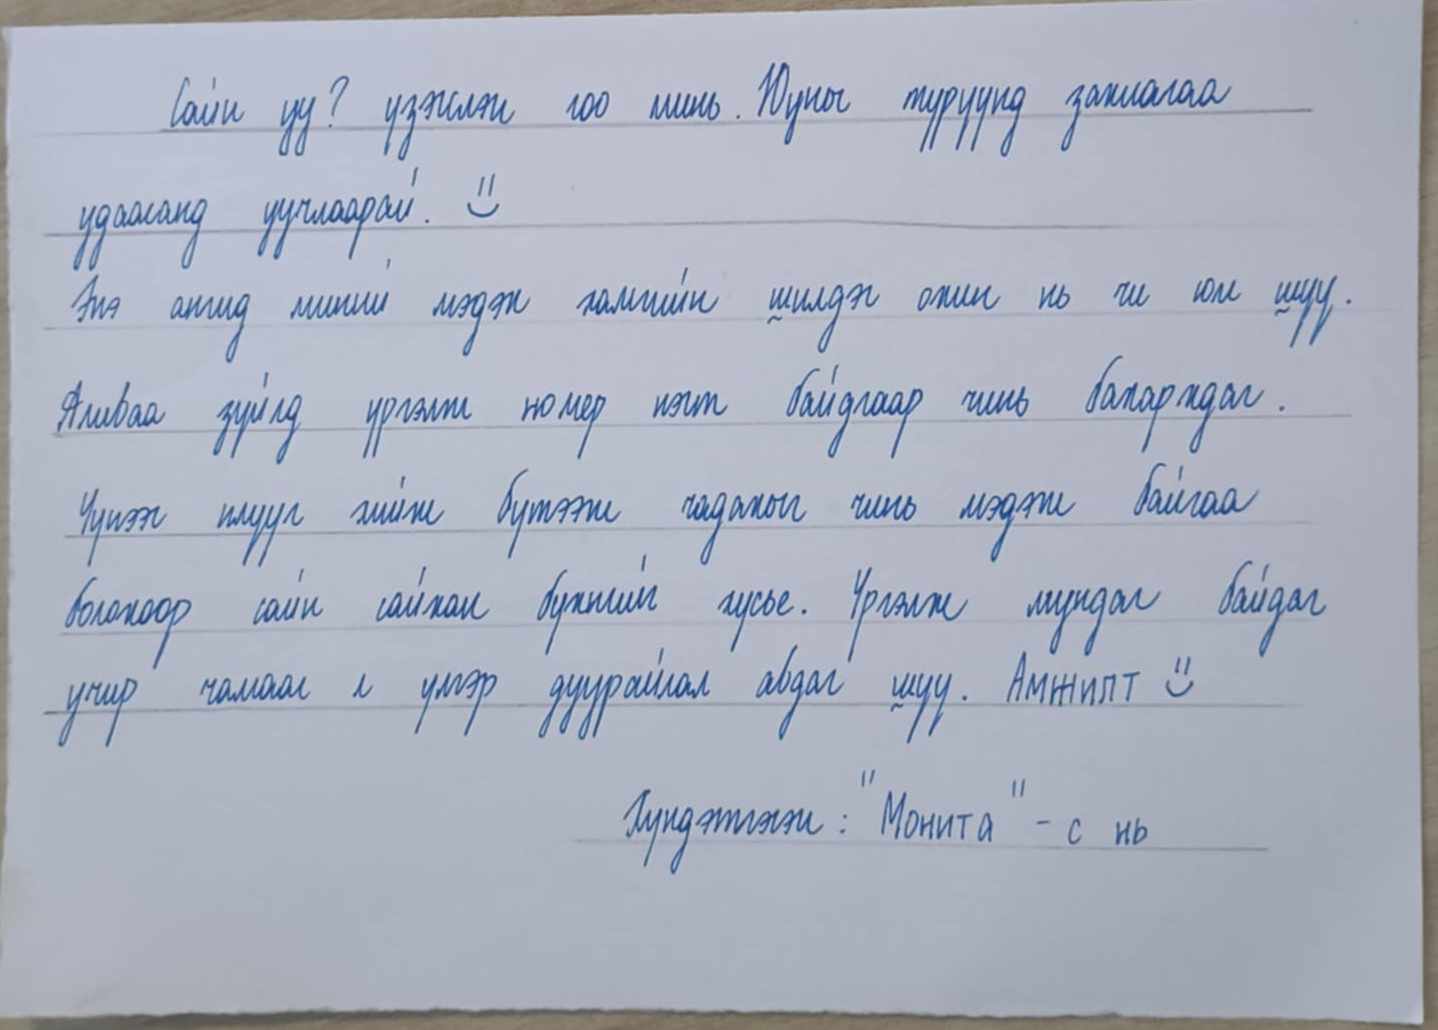 Сайн уу? үзэсгэлэн гоо минь. Юуны түрүүнд захиагаа
удаасанд уучлаарай. ټ
Энэ ангид миний мэдэх хамгийн шилдэг охин нь чи юм шүү.
Аливаа зүйлд үргэлж номер нэгт байдгаар чинь бахархдаг.
Үүнээс илүүг хийж бүтээж чадахыг чинь мэдэж байгаа
болохоор сайн сайхан бүхнийг хүсье. Үргэлж мундаг байдаг
учир чамаас л үлгэр дуурайлал авдаг шүү. Амжилт ټ
Хүндэтгэсэн: "Монита" - с нь